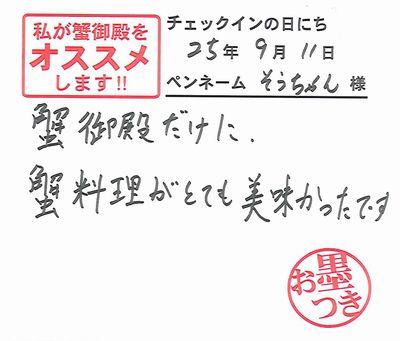 私が蟹御殿を
オススメ
します!!
チェックインの日にち
25年9月11日
ペンネーム そうちゃん 様
蟹御殿だけに、
蟹料理がとても美味かったです
お墨つき